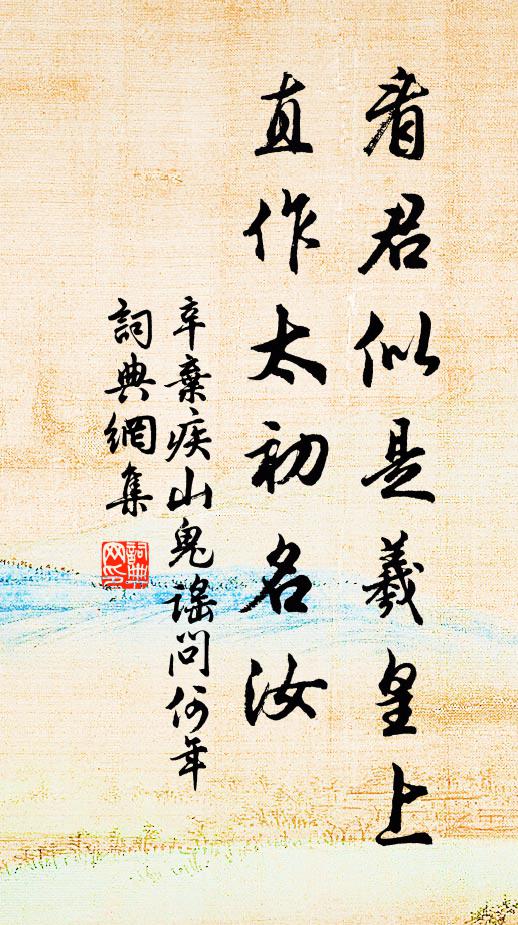 看君似是羲皇上
直作太初名汝
辛棄疾山鬼謠問何年
詞典網集
詞典
网印